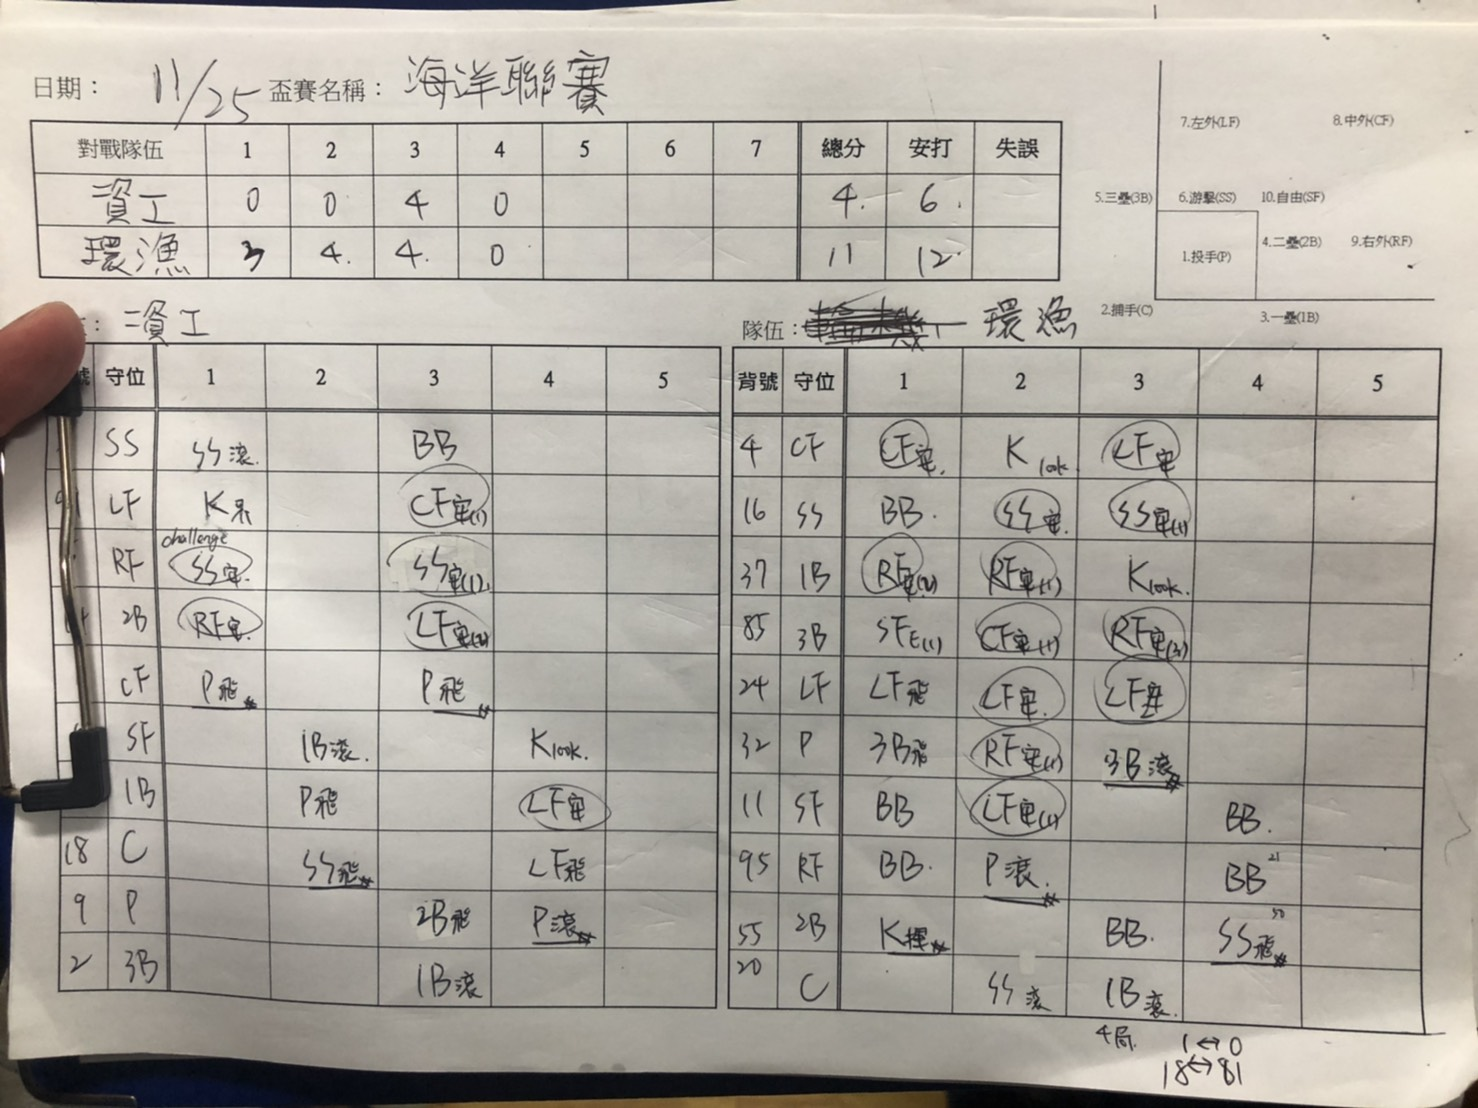 日期： 11/25 盃賽名稱： 海洋聯賽
對戰隊伍 1 2 3 4 5 6 7 總分 安打 失誤
資工 0 0 4 0 4. 6.
環漁 3 4. 4. 0 11 12.
7.左外(LF) 8.中外(CF)
5.三壘(3B) 6.游擊(SS) 10.自由(SF)
1.投手(P) 4.二壘(2B) 9.右外(RF)
2.捕手(C) 3.一壘(1B)
： 資工
號 守位 1 2 3 4 5
SS SS滾. BB
LF K吊 CF安(1)
challenge
RF SS安. SS安(1).
2B RF安. LF安(2)
CF P飛# P飛#
SF 1B滾. Klook.
1B P飛 LF安
18 C SS飛# LF飛
9 P 2B飛 P滾#
2 3B 1B滾
隊伍： 環漁
背號 守位 1 2 3 4 5
4 CF CF安. K look LF安
16 SS BB. SS安. SS安(1)
37 1B RF安(2) RF安(1) Klook.
85 3B SFE(1) CF安(1) RF安(3)
24 LF LF飛 LF安. LF安
32 P 3B飛 RF安(1) 3B滾#
11 SF BB LF安(1) BB.
95 RF BB. P滾.# BB 21
55 2B K揮# BB. SS飛# 50
20 C SS滾 1B滾.
4局. 1↔0
18↔81